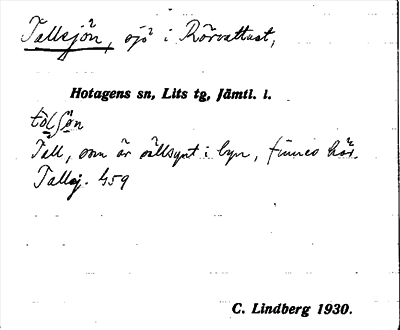 Tallsjön, sjö i Rörvattnet,
Hotagens sn, Lits tg, Jämtl. l.
Tall, som är sällsynt i byn, finnes här.
Tallsj. 459
C. Lindberg 1930.